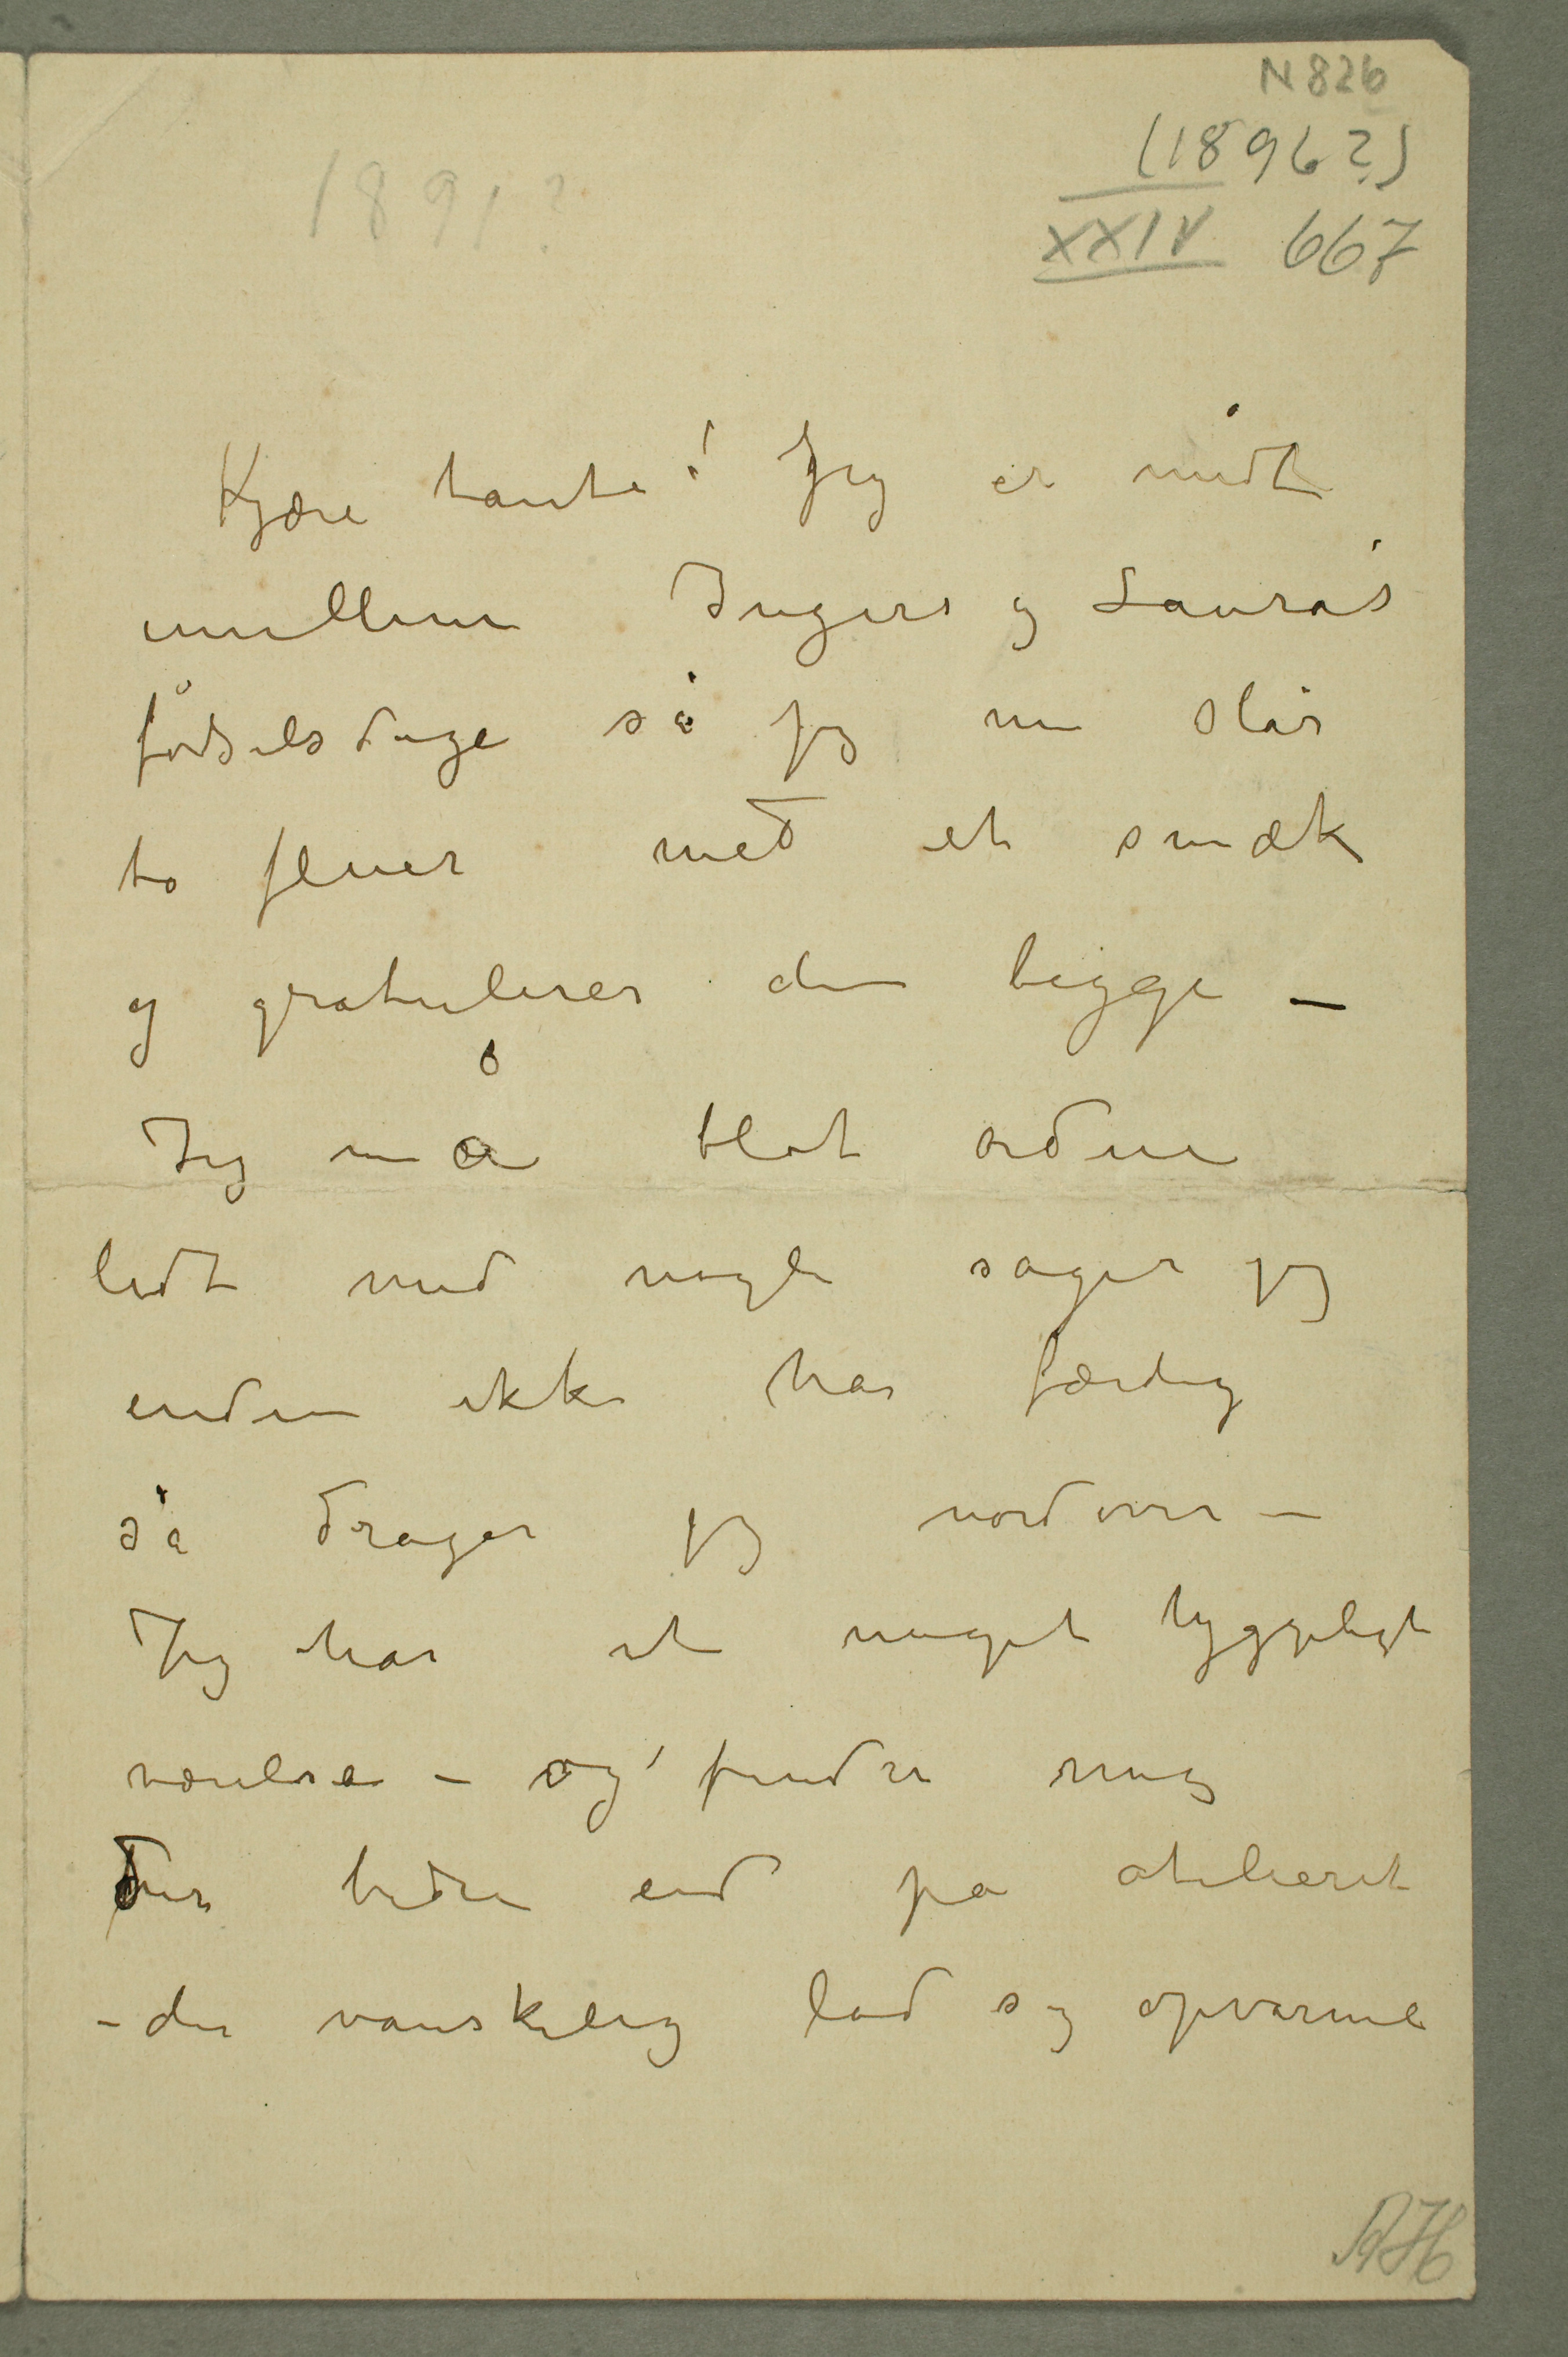 N 826
(1896?)
1891?
XXIV 667
Kjære tante! Jeg er midt
imellem Ingers og Lauras
fødselsdage så jeg nu slår
to fluer med et smæk
og gratulerer dem begge –
Jeg må blot ordne
lidt med nogle sager jeg
endnu ikke har færdig
så drager jeg nordover –
Jeg har et meget hyggeligt
værelse – og finder mig
der bedre end på atelieret
– der vanskelig lod sig opvarme
AH